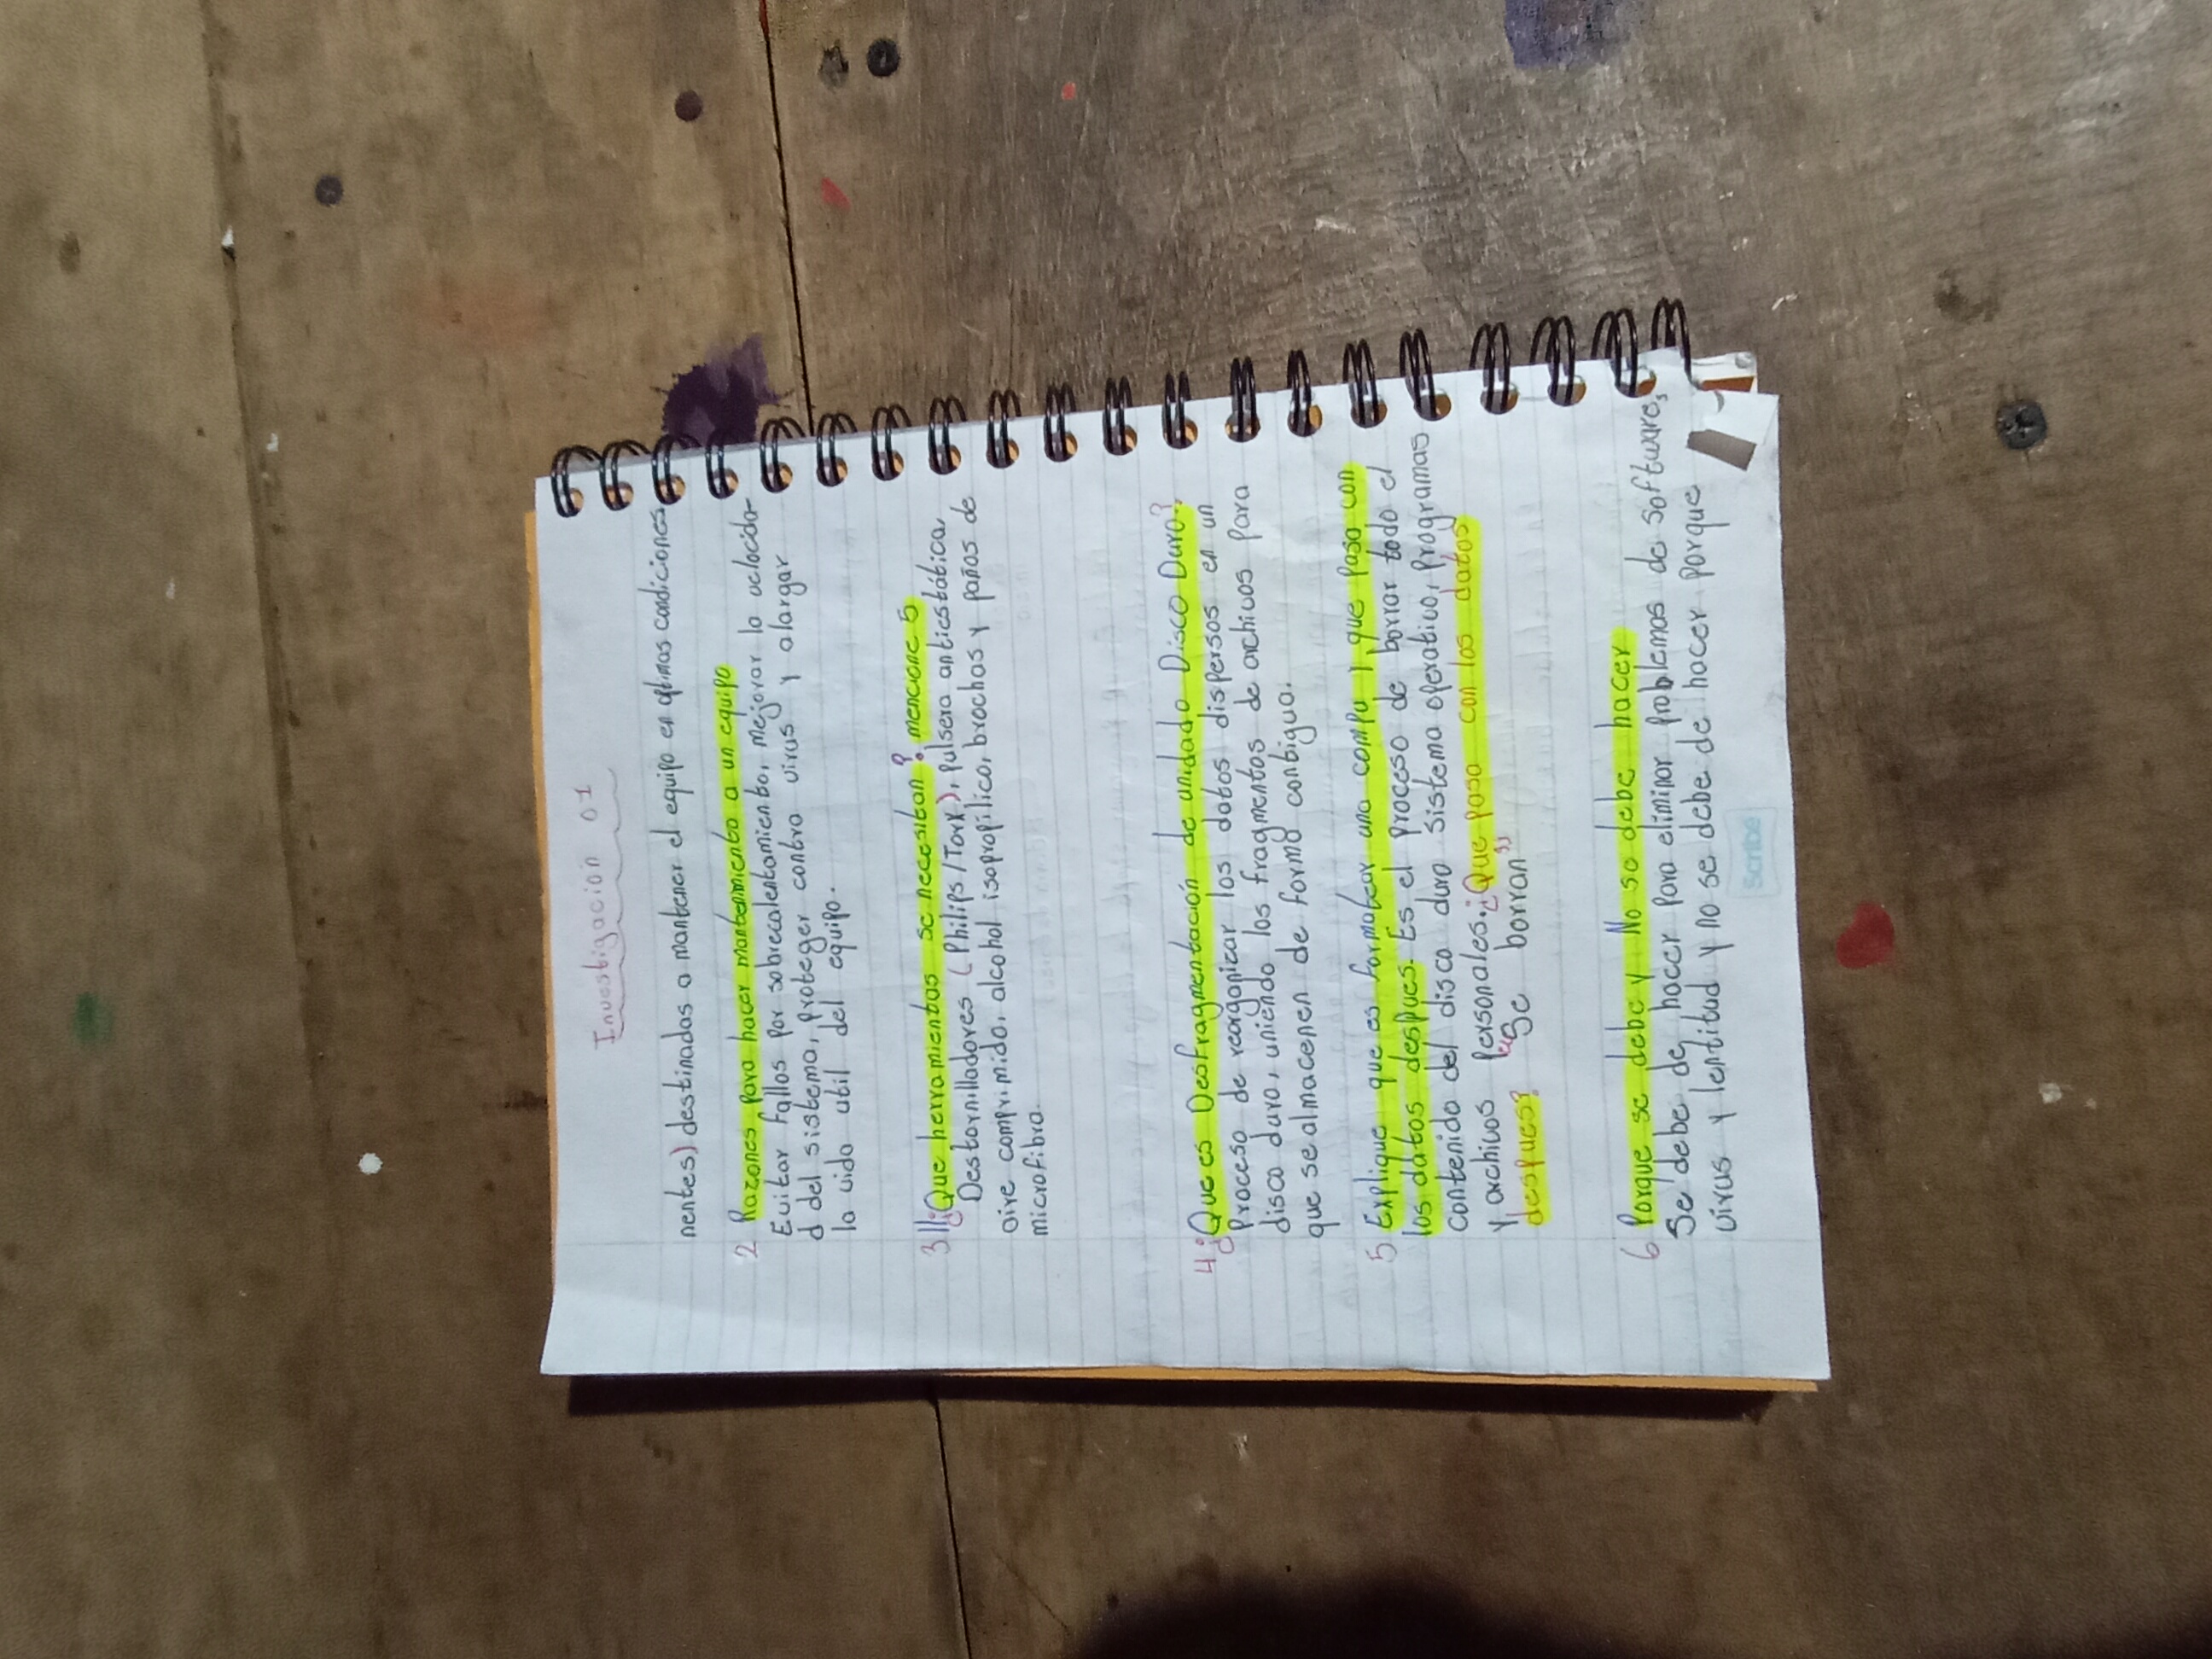 Investigación 01
nentes) destinadas a mantener el equipo en optimas condiciones
2 Razones para hacer mantenimiento a un equipo
Evitar fallos por sobrecalentamiento, mejorar la velocida-
d del sistema, proteger contra virus y alargar
la vida util del equipo.
3 ¿Que herramientas se necesitan? mencione 5
Destornilladores (Philips/Torx), pulsera antiestática,
aire comprimido, alcohol isopropilico, brochas y paños de
microfibra.
4 ¿Que es Desfragmentación de unidad o Disco Duro?
Proceso de reorganizar los datos dispersos en un
disco duro, uniendo los fragmentos de archivos para
que se almacenen de forma contigua.
5 Explique que es formatear una compu y que pasa con
los datos despues. Es el proceso de borrar todo el
contenido del disco duro sistema operativo, programas
y archivos personales. ¿Que pasa con los datos
despues? "Se borran"
6 Porque se debe y No se debe hacer
Se debe de hacer para eliminar problemas de software,
virus y lentitud y no se debe de hacer porque
Scribe